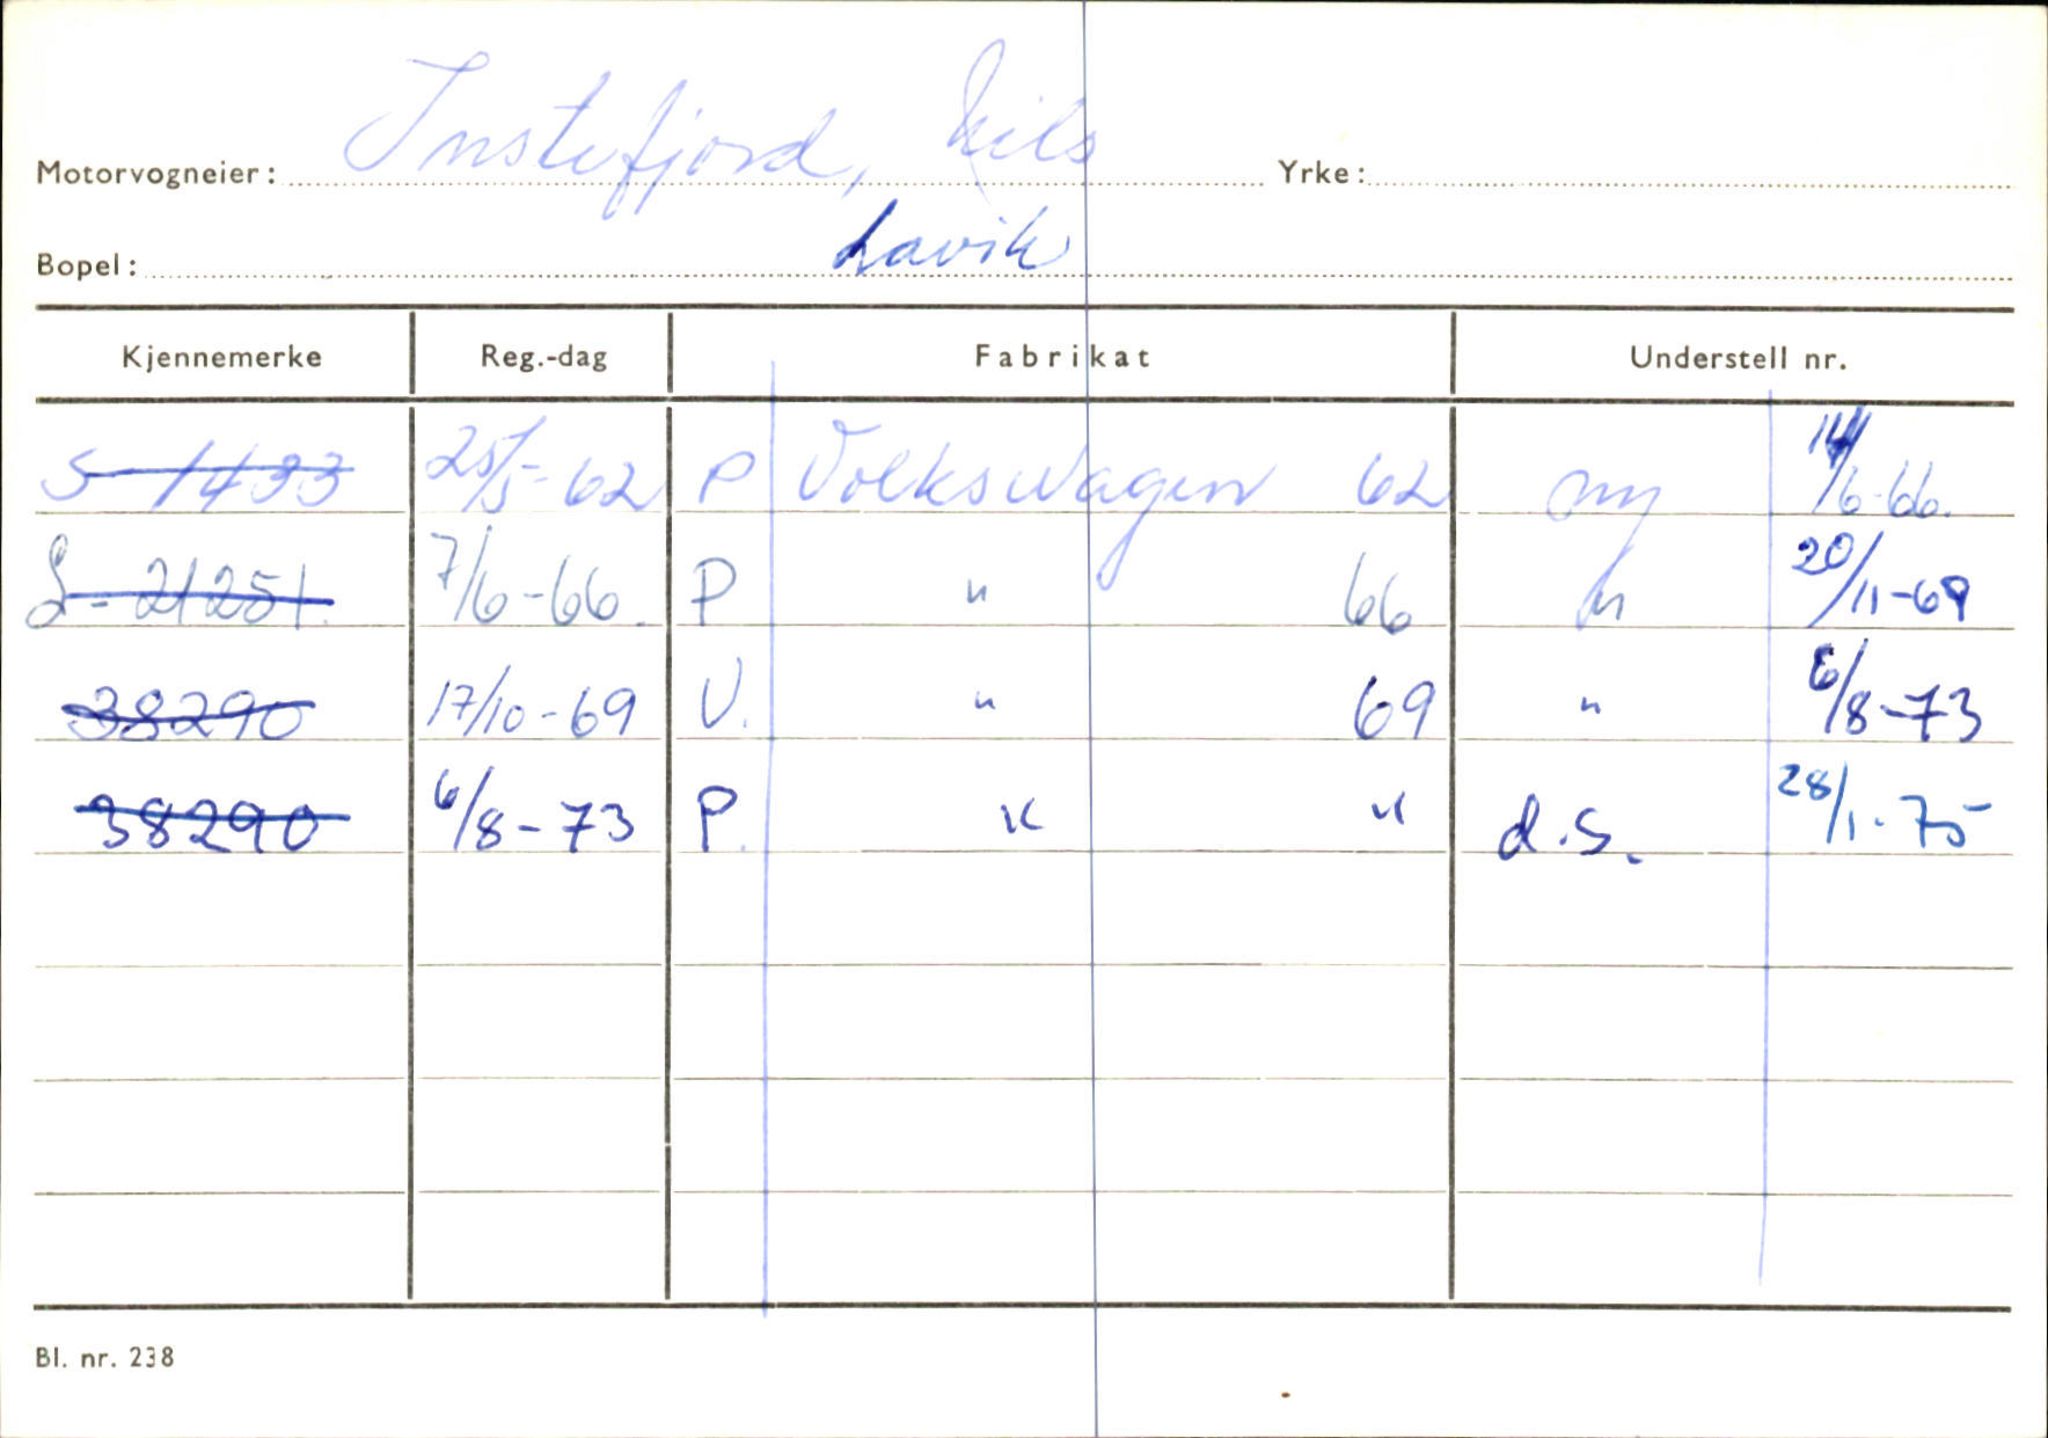 Motorvogneier: Instefjord, Nils Yrke:
Bopel: Lavik
Kjennemerke Reg.-dag Fabrikat Understell nr.
S 1433 25/5-62 P Volkswagen 62 ny 14/6-66.
S-21251. 7/6-66. P " 66 " 20/11-69
38290 17/10-69 V. " 69 " 6/8-73
38290 6/8-73 P. " " d.s. 28/1-75
Bl. nr. 238